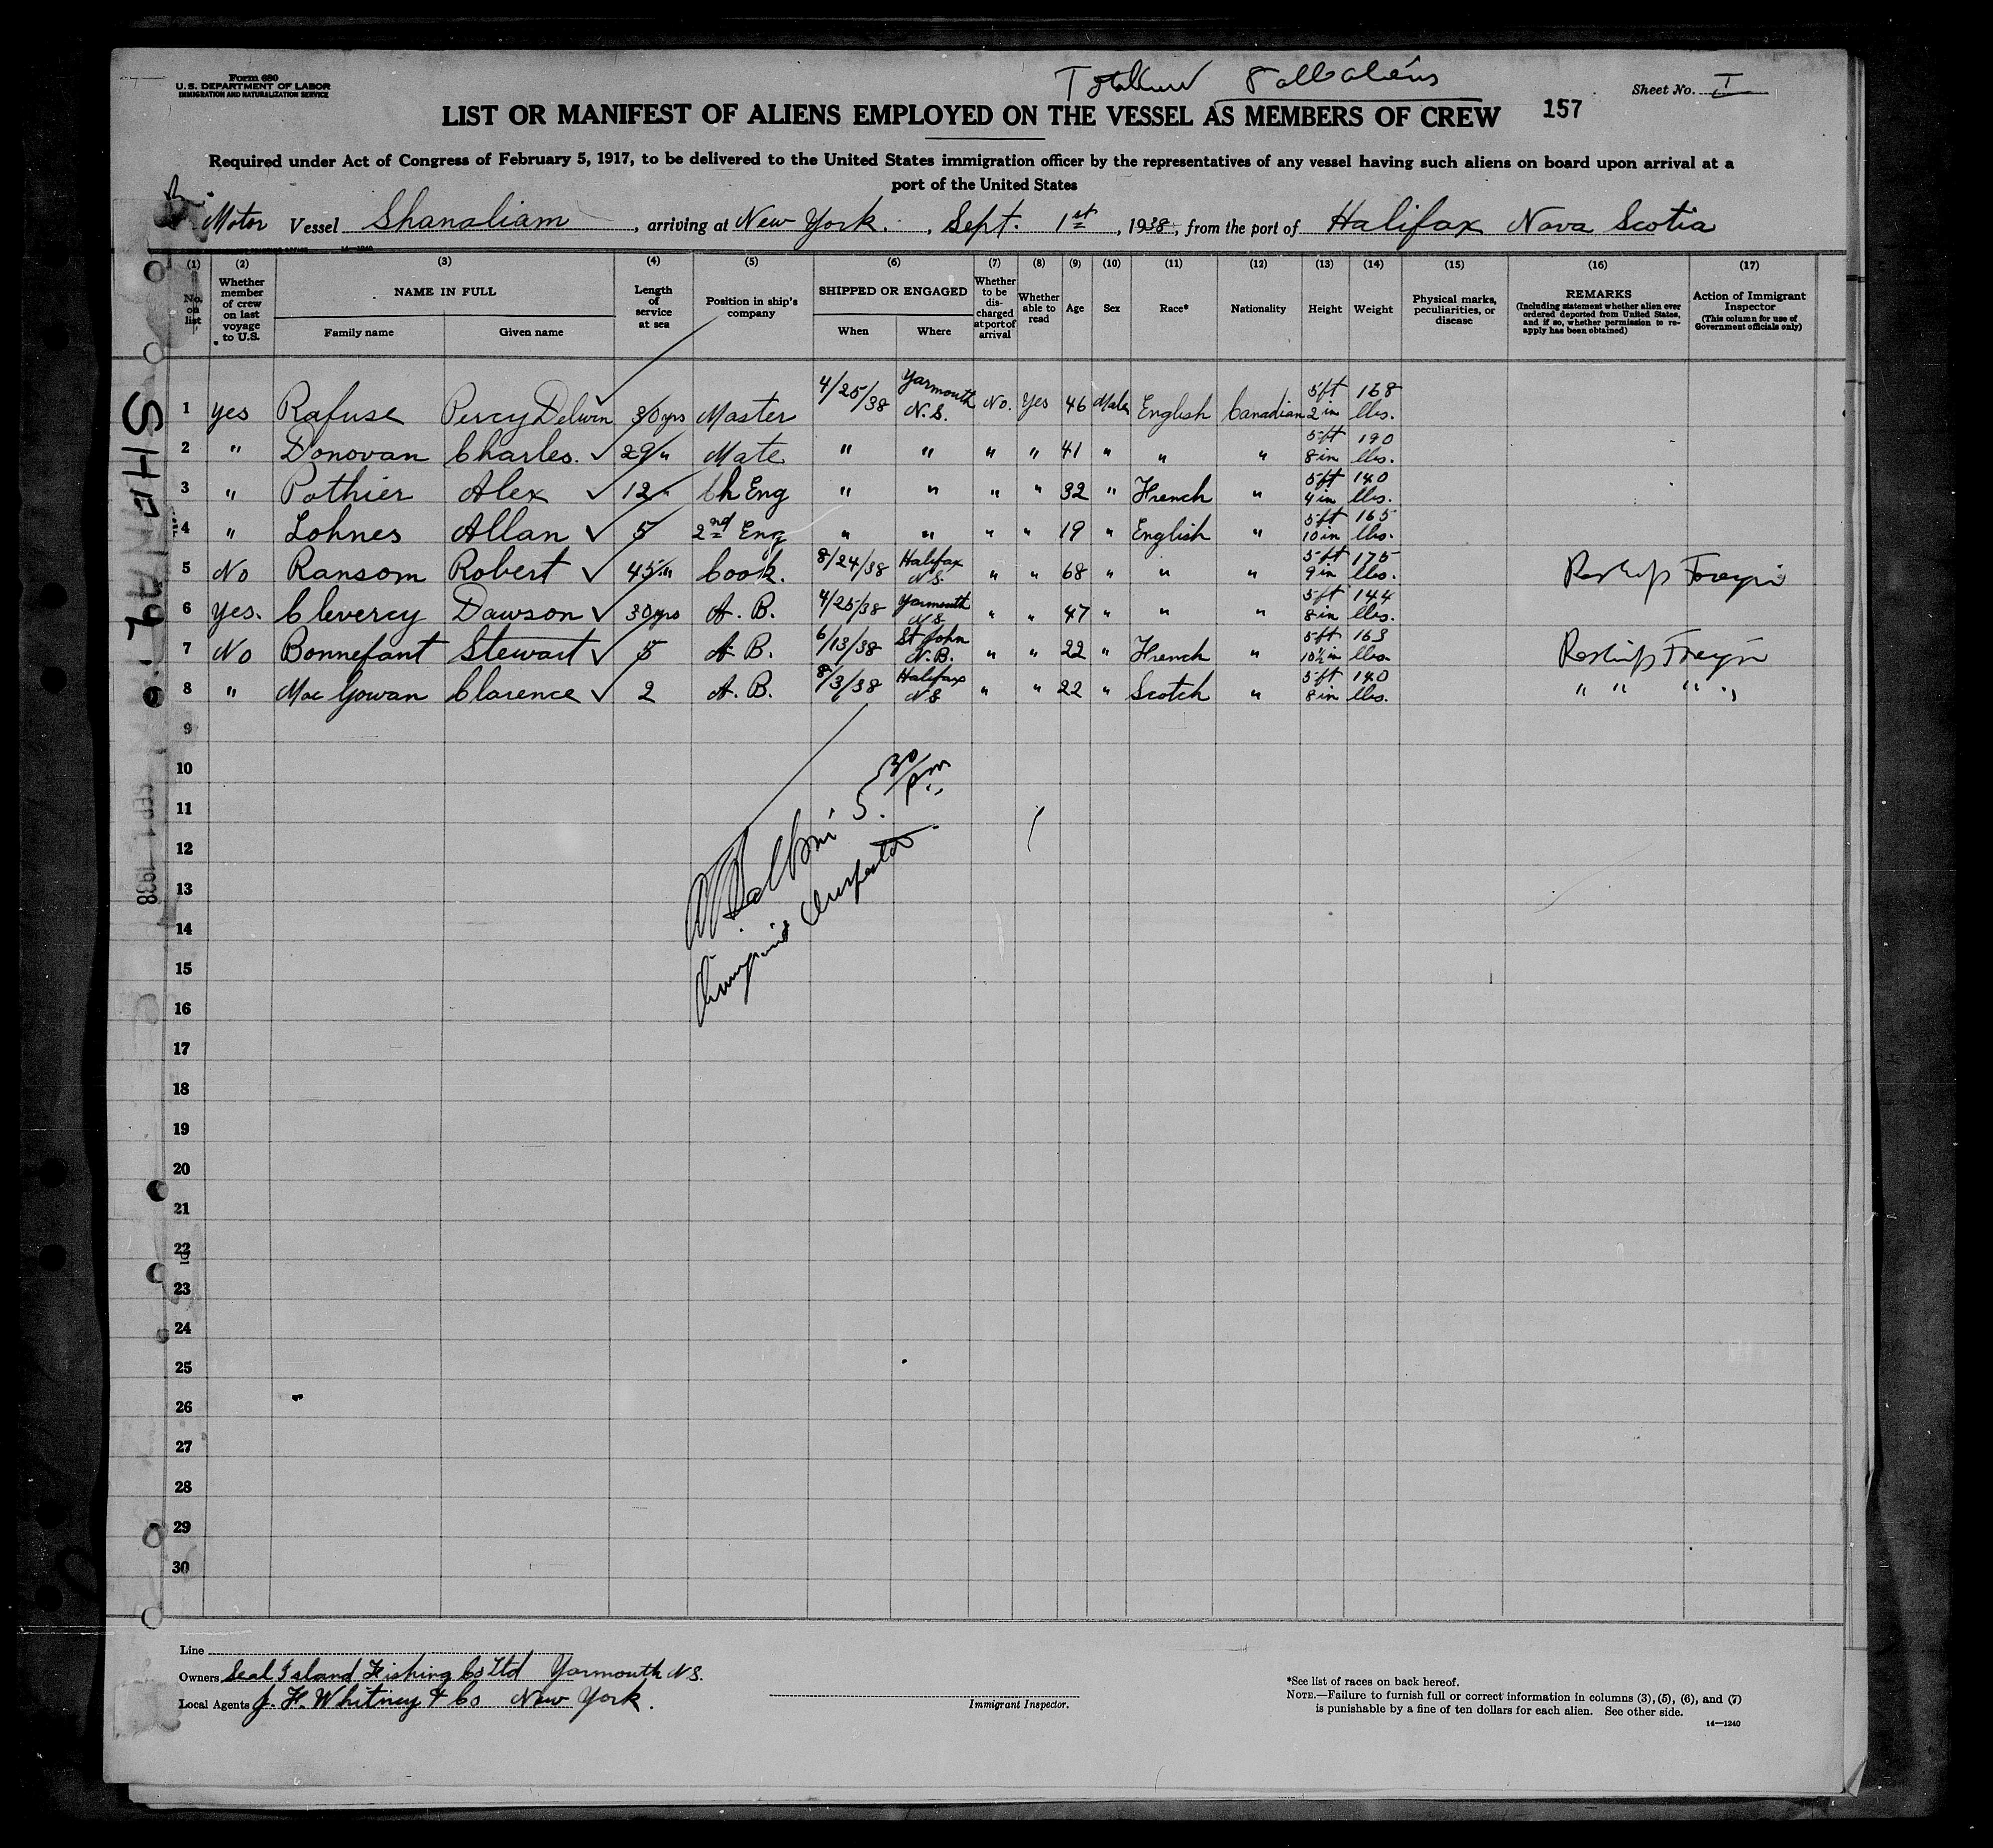 Form 680
U.S. DEPARTMENT OF LABOR
IMMIGRATION AND NATURALIZATION SERVICE
8 all aliens
Sheet No. I
LIST OR MANIFEST OF ALIENS EMPLOYED ON THE VESSEL AS MEMBERS OF CREW 157
Required under Act of Congress of February 5, 1917, to be delivered to the United States immigration officer by the representatives of any vessel having such aliens on board upon arrival at a
port of the United States
Br. Motor Vessel Shanaliam, arriving at New York., Sept. 1st, 1938, from the port of Halifax Nova Scotia
(1) (2) (3) (4) (5) (6) (7) (8) (9) (10) (11) (12) (13) (14) (15) (16) (17)
No. on list
Whether member of crew on last voyage to U.S.
NAME IN FULL
Family name Given name
Length of service at sea
Position in ship's company
SHIPPED OR ENGAGED
When Where
Whether to be discharged at port of arrival
Whether able to read
Age
Sex
Race*
Nationality
Height
Weight
Physical marks, peculiarities, or disease
REMARKS
(Including statement whether alien ever ordered deported from United States, and if so, whether permission to reapply has been obtained)
Action of Immigrant Inspector
(This column for use of Government officials only)
1 yes Rafuse Percy Delwin ✓ 30 yrs Master 4/25/38 Yarmouth N.S. No. Yes 46 Male English Canadian 5 ft 2 in 168 lbs.
2 " Donovan Charles. ✓ 29 " Mate " " " " 41 " " " 5 ft 8 in 190 lbs.
3 " Pothier Alex ✓ 12 " Ch Eng " " " " 32 " French " 5 ft 4 in 140 lbs.
4 " Lohnes Allan ✓ 5 2nd Eng " " " " 19 " English " 5 ft 10 in 165 lbs.
5 No Ransom Robert ✓ 45 " Cook. 8/24/38 Halifax N.S. " " 68 " " " 5 ft 9 in 175 lbs. Reship Foreign
6 Yes. Clevercy Dawson ✓ 30 yrs A. B. 4/25/38 Yarmouth N.S. " " 47 " " " 5 ft 8 in 144 lbs.
7 No Bonnefant Stewart ✓ 5 A B. 6/13/38 St John N.B. " " 22 " French " 5 ft 10½ in 163 lbs. Reship Foreign
8 " Mac Gowan Clarence ✓ 2 A. B. 8/3/38 Halifax N.S. " " 22 " Scotch " 5 ft 8 in 140 lbs. " " " "
9
10
11
12
13
14
15
16
17
18
19
20
21
22
23
24
25
26
27
28
29
30
5.30 pm
Immigrant Inspector
SEP 1 1938
Line
Owners Seal Island Fishing Co Ltd Yarmouth N.S.
Local Agents J. H. Whitney & Co New York.
Immigrant Inspector.
*See list of races on back hereof.
NOTE.—Failure to furnish full or correct information in columns (3), (5), (6), and (7)
is punishable by a fine of ten dollars for each alien. See other side.
14—1240